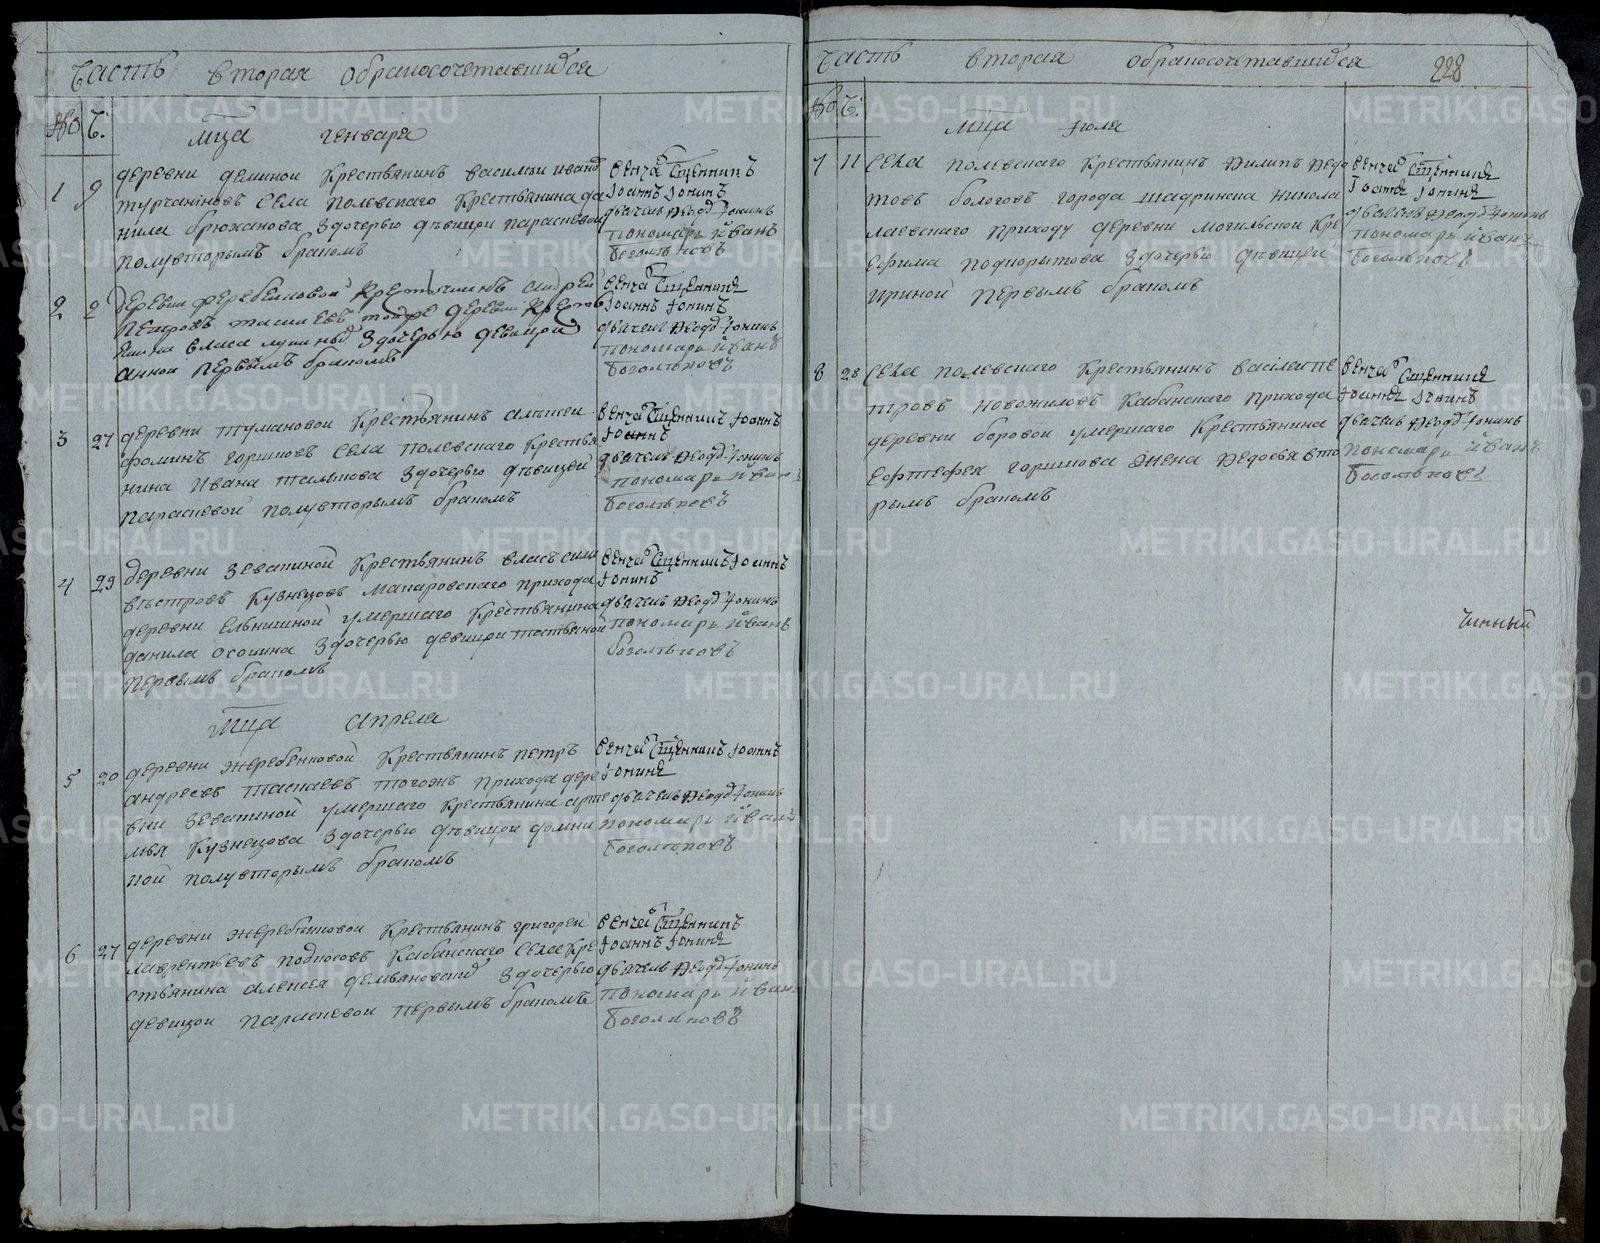 Часть вторая обракосочетавшихся
№ Ч:
мца генваря
1 9 деревни деминой крестьянинъ василеи иванъ
турчаниновъ села полевскаго крестьянина да
нила брюханова здочерью девицеи параскевои
полувторымъ бракомъ
венча священникъ
Iоаннъ Iонинъ
дьячекъ Феодъ Iонинъ
пономарь иванъ
боголѣповъ
2 2 деревни жеребенковой крестьянинъ андреи
петровъ таскаевъ тояже деревни крестья
нина власа здочерью девицеи
анной первымъ бракомъ
венча священникъ
Iоаннъ Iонинъ
дьячекъ Феодъ Iонинъ
пономарь иванъ
боголѣповъ
3 27 деревни тумановой крестьянинъ алексеи
фоминъ горшковъ села полевскаго крестья
нина ивана талькова здочерью дѣвицеи
параскевой полувторымъ бракомъ
венча священникъ Iоаннъ
Iонинъ
дьячекъ Феодъ Iонинъ
пономарь иванъ
боголѣповъ
4 29 деревни зевакиной крестьянинъ власъ сили
вѣстровъ кузнецовъ макаровскаго прихода
деревни ельнишной умершаго крестьянина
данила осокина здочерью девицеи татьяной
первымъ бракомъ
венча священникъ Iоаннъ
Iонинъ
дьячекъ Феодъ Iонинъ
пономарь иванъ
боголѣповъ
мца апреля
5 20 деревни жеребенковой крестьянинъ петръ
андреевъ таскаевъ тогожъ прихода дере
вни зевакиной умершаго крестьянина арте
мья кузнецова здочерью дѣвицеи домни
кой полувторымъ бракомъ
венча священникъ Iоаннъ
Iонинъ
дьячекъ Феодъ Iонинъ
пономарь иванъ
боголѣповъ
6 27 деревни жеребенковой крестьянинъ григореи
лаврентьевъ подкосовъ кабанскаго села кре
стьянина алексея демьяновыхъ здочерью
девицой параскевои первымъ бракомъ
венча священникъ
Iоаннъ Iонинъ
дьячекъ Феодъ Iонинъ
пономарь иванъ
боголѣповъ
Часть вторая обракосочетавшихся 228
№ Ч:
мца июля
7 11 села полевскаго крестьянинъ Филипъ Федо
товъ бологовъ города шадринска никола
лаевскаго приходу деревни могильской кре
ефима подкорытова здочерью дѣвицеи
ириной первымъ бракомъ
венча священникъ
Iоаннъ Iонинъ
дьячекъ Феодъ Iонинъ
пономарь иванъ
боголѣповъ
8 28 села полевскаго крестьянинъ василеи пе
тровъ новожиловъ кабанскаго прихода
деревни боровой умершаго крестьянина
ефтефея горшкова жена Федосья вто
рымъ бракомъ
венча священникъ
Iоаннъ Iонинъ
дьячекъ Феодъ Iонинъ
пономарь иванъ
боголѣповъ
чинный
METRIKI.GASO-URAL.RU